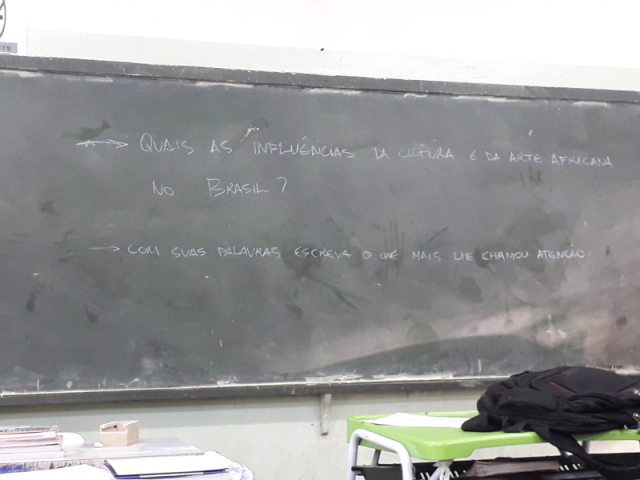 → QUAIS AS INFLUÊNCIAS DA CULTURA E DA ARTE AFRICANA
NO BRASIL?
→ COM SUAS PALAVRAS ESCREVA O QUE MAIS LHE CHAMOU ATENÇÃO.